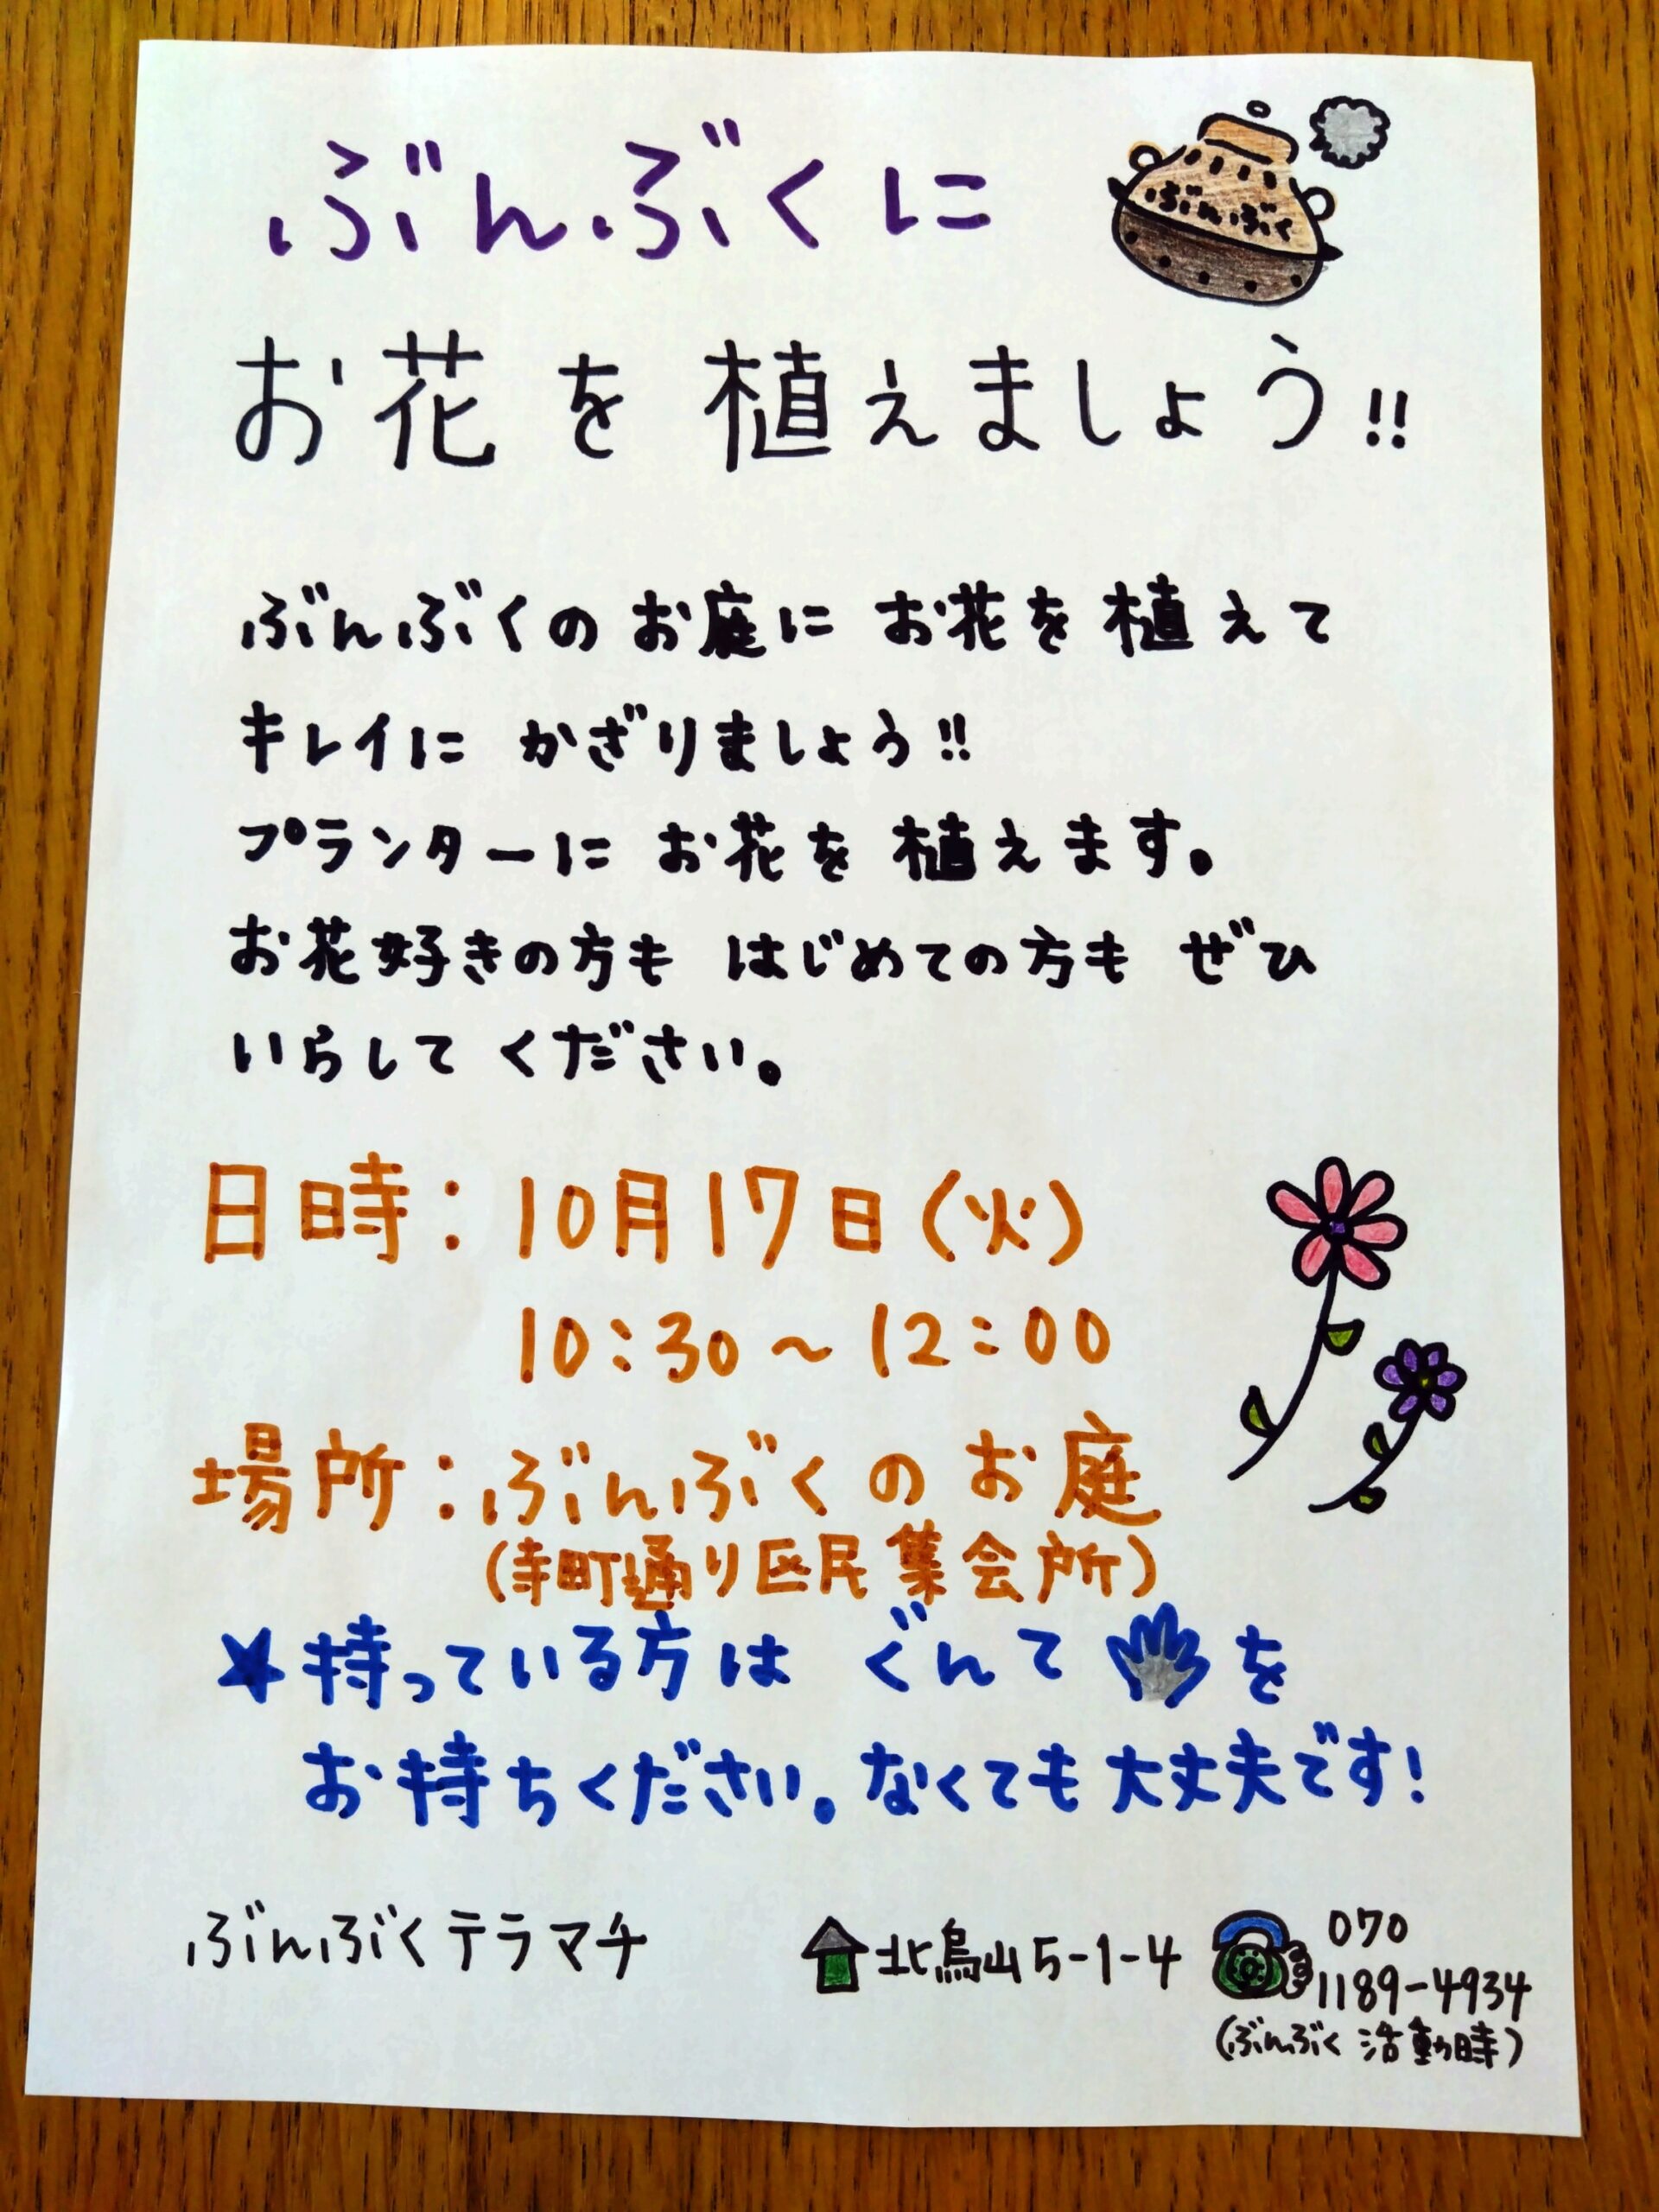 ぶんぶくに
ぶんぶく
お花を植えましょう!!
ぶんぶくのお庭に お花を植えて
キレイに かざりましょう!!
プランターに お花を植えます。
お花好きの方も はじめての方も ぜひ
いらして ください。
日時:10月17日(火)
10:30~12:00
場所:ぶんぶくのお庭
(寺町通り区民集会所)
★持っている方は ぐんてを
お持ちください。なくても大丈夫です!
ぶんぶくテラマチ
北烏山5-1-4
070
1189-4934
(ぶんぶく 活動時)